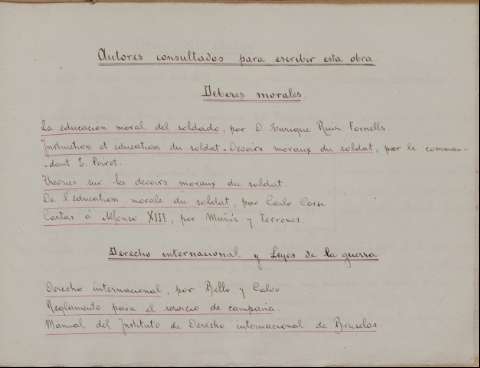 Autores consultados para escribir esta obra
Deberes morales
La educacion moral del soldado, por D. Enrique Ruiz Fornells.
Instruction et education du soldat - Devoirs moraux du soldat, par le comman-
-dant S. Poirot.
Theories sur les devoirs moraux du soldat.
De l'education morale du soldat, por Carlo Corsi
Cartas á Alfonso XIII, por Muñiz y Terrones.
Derecho internacional y Leyes de la guerra
Derecho internacional, por Bello y Calvo
Reglamento para el servicio de campaña
Manual del Instituto de Derecho internacional de Bruselas